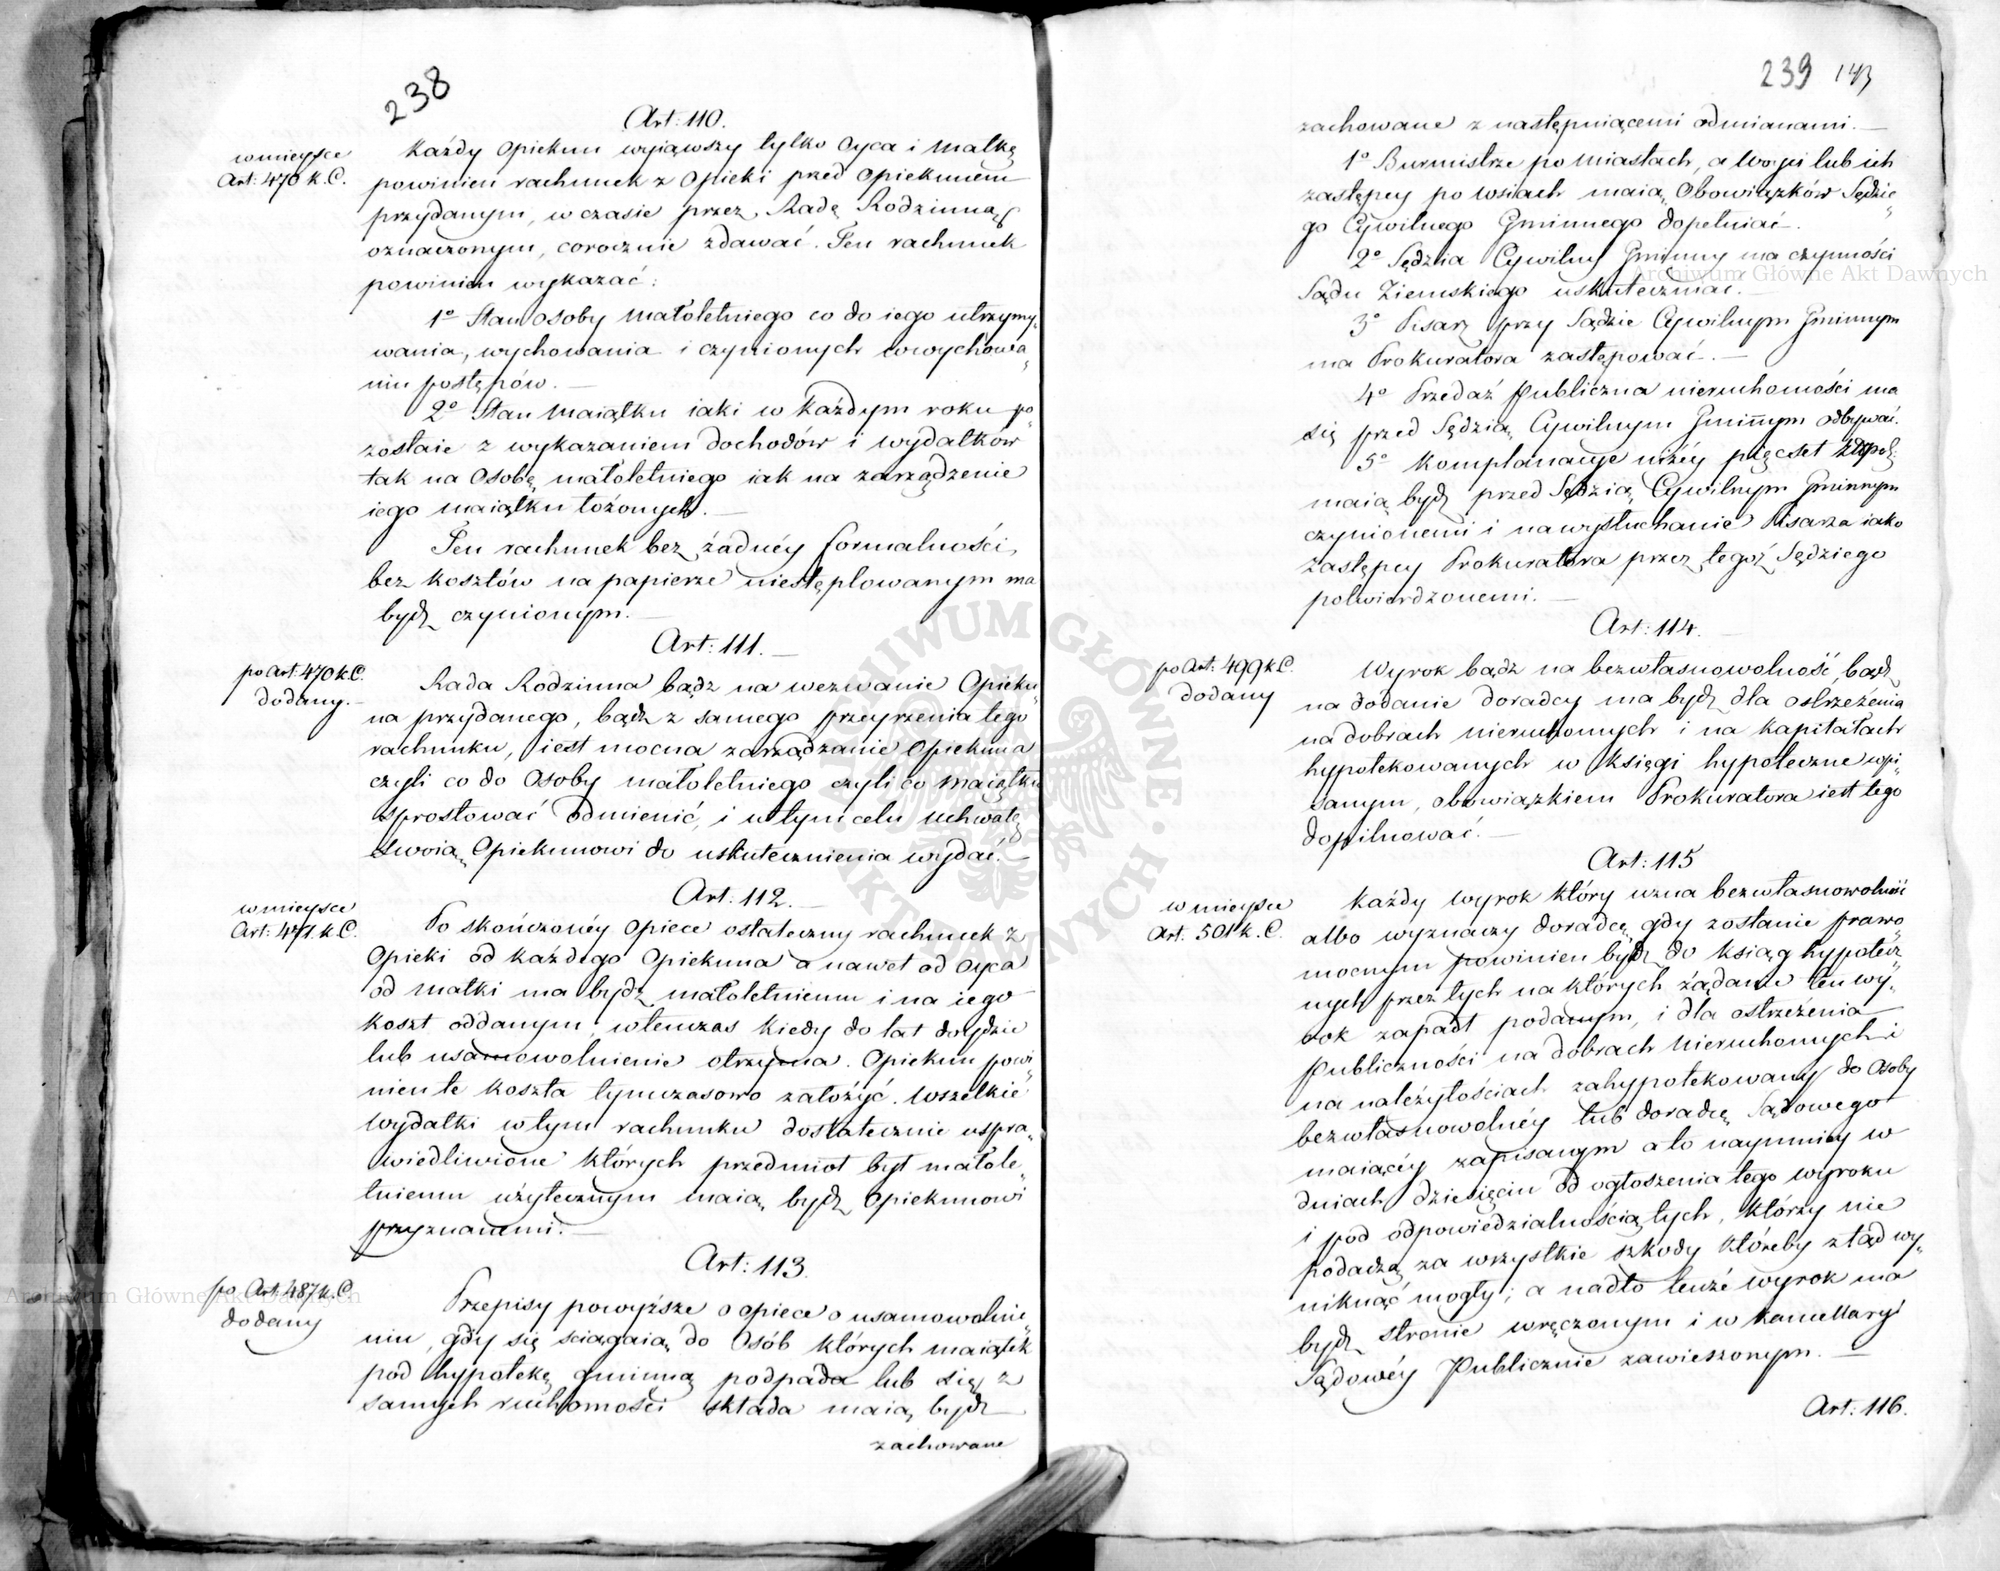 238
Art: 110.
w mieysce
Art: 470 k. C.
Każdy Opiekun wyiąwszy tylko Oyca i Matkę
powinien rachunek z Opieki przed Opiekunem
przydanym, w czasie przez Radę Rodzinną
oznaczonym, corocznie zdawać. Ten rachunek
powinien wykazać:
1º Stan osoby Małoletniego co do iego utrzymy„
wania, wychowania i czynionych w wychowa„
niu postępów. —
2º Stan Maiątku iaki w każdym roku po„
zostaie z wykazaniem dochodów i wydatków
tak na Osobę małoletniego iak na zarządzenie
iego maiątku łożonych. —
Ten rachunek bez żadnéy formalności,
bez kosztów na papierze niestęplowanym ma
bydź czynionym. —
Art: 111. —
po Art: 470 k. C.
dodany. —
Rada Rodzinna bądź na wezwanie Opieku„
na przydanego, bądź z samego przeyrzenia tego
rachunku, iest mocna zarządzanie Opiekuna
czyli co do Osoby małoletniego czyli co Maiątku
sprostować odmienić, i w tym celu uchwałę
swoią Opiekunowi do uskutecznienia wydać. —
Art: 112. —
w mieysce
Art: 471. k. C.
Po skończonéy opiece ostateczny rachunek z
Opieki od każdego Opiekuna a nawet od Oyca
od Matki ma bydź małoletniemu i na iego
koszt oddanym, wtenczas kiedy do lat doydzie
lub usamowolnienie otrzyma. Opiekun powi„
nien te koszta tymczasowo założyć. Wszelkie
wydatki w tym rachunku dostatecznie uspra„
wiedliwione których przedmiot był małole„
tniemu użytecznym maią bydź Opiekunowi
przyznanemi. —
Art: 113.
po Art 487 k. C.
dodany
Przepisy powyższe o opiece o usamowolnie„
niu, gdy się sciągaią do Osób których maiątek
pod hypotekę gminną podpada lub się z
samych ruchomości składa maią bydź
zachowane
239 143
zachowane z następuiącemi odmianami. —
1º Burmistrze po Miastach, a Woyci lub ich
zastępcy po wsiach maią Obowiązków Sędzie„
go Cywilnego Gminnego dopełniać.
2º Sędzia Cywilny Gminny ma czynności
Sądu Ziemskiego uskuteczniać. —
3º Pisarz przy Sądzie Cywilnym Gminnym
ma Prokuratora zastępować. —
4º Przedaż publiczna nieruchomości ma
się przed Sędzią Cywilnym Gminnym odbywać.
5º Komplanacye niżéy pięcset
maią bydź przed Sędzią Cywilnym Gminnym
czynionemi i na wysłuchanie Pisarza iako
zastępcy Prokuratora przez tegoż Sędziego
potwierdzonemi. —
Art: 114. —
po Art: 499 k. C.
dodany
Wyrok bądź na bezwłasnowolność, bądź
na dodanie doradcy ma bydź dla ostrzeżenia
na dobrach nieruchomych i na kapitałach
hypotekowanych w księgi hypoteczne wpi„
sanym, obowiązkiem Prokuratora iest tego
dopilnować. —
Art: 115
w mieysce
Art. 501 k. C.
Każdy wyrok który uzna bezwłasnowolność
albo wyznaczy doradcę gdy zostanie prawo
mocnym powinien bydź do ksiąg hypotecz„
nych przez tych na których żądanie ten wy„
rok zapadł podanym, i dla ostrzeżenia
publiczności na dobrach Nieruchomych i
na należytościach zahypotekowany do Osoby
bezwłasnowolnéy lub doradcę Sądowego
maiącéy zapisanym a to naymniey w
dniach dziesięciu od ogłoszenia tego wyroku
i pod odpowiedzialnością tych, którzy nie
podadzą za wszystkie szkody któreby ztąd wy„
niknąć mogły; a nadto tenże wyrok ma
bydź stronie wręczonym i w kancellaryi
Sądowéy Publicznie zawieszonym. —
Art: 116.
Archiwum Główne Akt Dawnych
Archiwum Główne Akt Dawnych
ARCHIWUM GŁÓWNE · AKT DAWNYCH ·